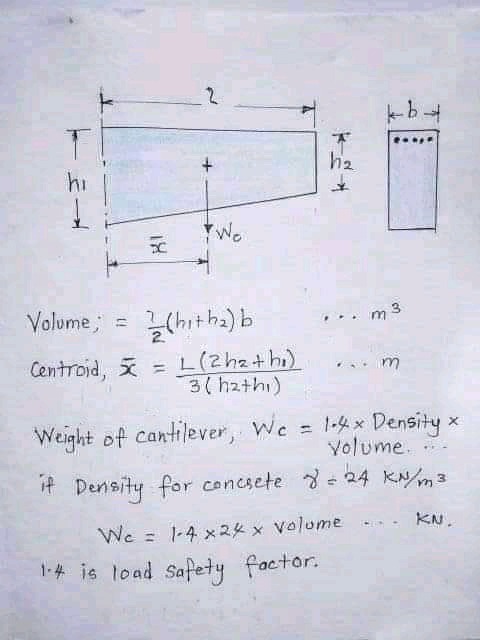 l
b
h1
h2
Wc
x̄
Volume; = l/2 (h1+h2) b ... m3
Centroid, x̄ = L(2h2+h1) / 3(h2+h1) ... m
Weight of cantilever, Wc = 1.4 x Density x
Volume. ...
if Density for concsete γ = 24 KN/m3
Wc = 1.4 x 24 x Volume ... KN.
1.4 is load safety factor.